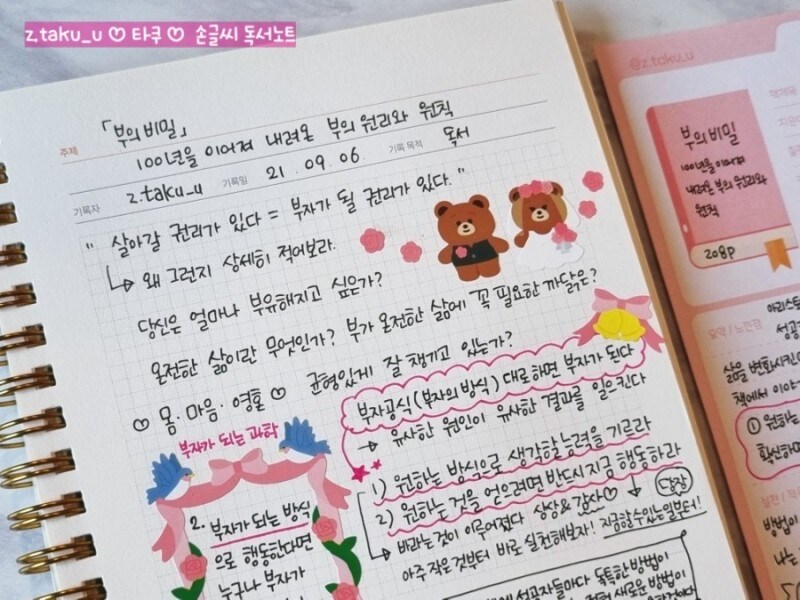 z.taku_u ♡ 타쿠 ♡ 손글씨 독서노트
주제 「부의 비밀」
100년을 이어져 내려온 부의 원리와 원칙
기록자 z.taku_u 기록일 21. 09. 06. 기록 목적 독서
" 살아갈 권리가 있다 = 부자가 될 권리가 있다. "
↳ 왜 그런지 상세히 적어보라.
당신은 얼마나 부유해지고 싶은가?
온전한 삶이란 무엇인가? 부가 온전한 삶에 꼭 필요한 까닭은?
♡ 몸 · 마음 · 영혼 ♡ 균형있게 잘 챙기고 있는가?
부자공식 (부자의 방식) 대로하면 부자가 된다
→ 유사한 원인이 유사한 결과를 일으킨다
1) 원하는 방식으로 생각할 능력을 기르라
2) 원하는 것을 얻으려면 반드시 지금 행동하라
당장
→ 바라는 것이 이루어졌다 상상 & 감사♡ 지금 할 수 있는 일부터!
아주 작은 것부터 바로 실천해보자!
성공자들마다 독특한 방법이
새로운 방법이
부자가 되는 과학
2. 부자가 되는 방식
으로 행동한다면
누구나 부자가
@z.taku_u
부의 비밀
100년을 이어져
내려온 부의 원리와
원칙
208p
요약 / 느낀점
아리스토
성공
삶을 변화시키
책에서 이야
① 원하는
확신하면
실천
방법이